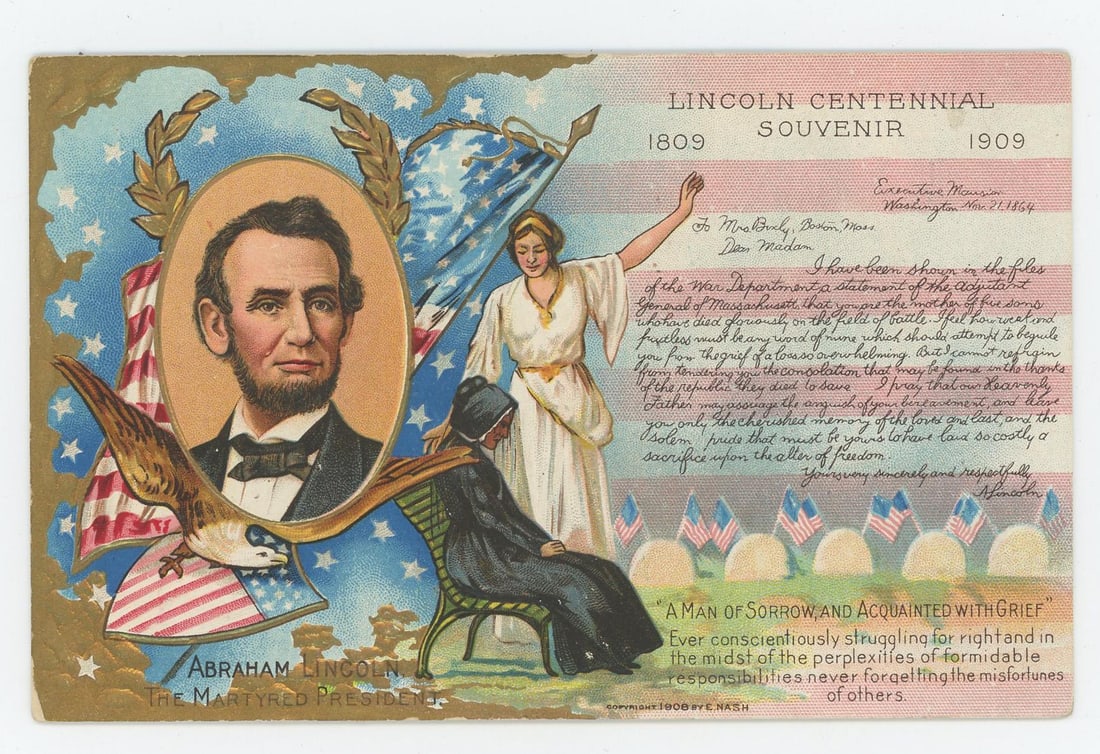 LINCOLN CENTENNIAL
SOUVENIR
1809 1909
Executive Mansion
Washington Nov. 21, 1864
To Mrs Bixly, Boston, Mass.
Dear Madam
I have been shown in the files
of the War Department, a statement of the Adjutant
General of Massachusett. that you are the mother of five sons
who have died gloriously on the field of battle. I feel how weak and
fruitless must be any word of mine which should attempt to beguile
you from the grief of a loss so overwhelming. But I cannot refrain
from tendering you the consolation that may be found in the thanks
of the republic they died to save I pray that our Heavenly
Father may assuage the anguish of your bereavement, and leave
you only the cherished memory of the loved and lost, and the
solem pride that must be yours to have laid so costly a
sacrifice upon the alter of freedom.
Yours very sincerely and respectfully
A Lincoln
"A MAN OF SORROW, AND ACQUAINTED WITH GRIEF"
Ever conscientiously struggling for right and in
the midst of the perplexities of formidable
responsibilities never forgetting the misfortunes
of others.
ABRAHAM LINCOLN.
THE MARTYRED PRESIDENT.
COPYRIGHT 1908 BY E. NASH